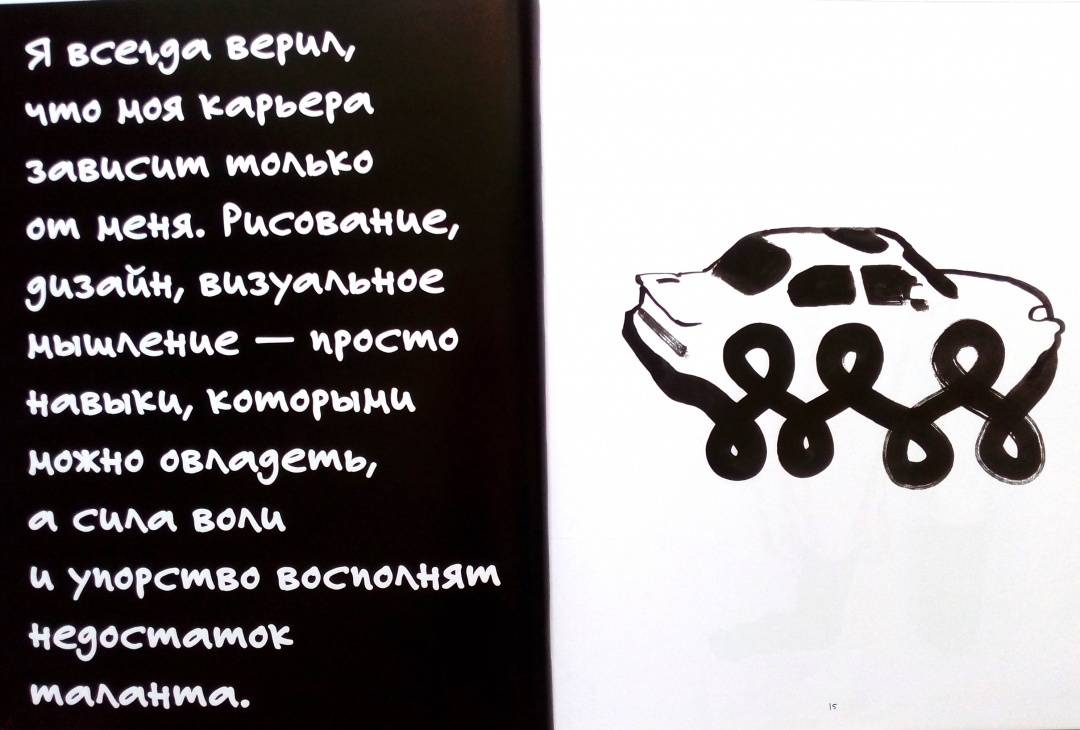 Я всегда верил,
что моя карьера
зависит только
от меня. Рисование,
дизайн, визуальное
мышление — просто
навыки, которыми
можно овладеть,
а сила воли
и упорство восполнят
недостаток
таланта.
15